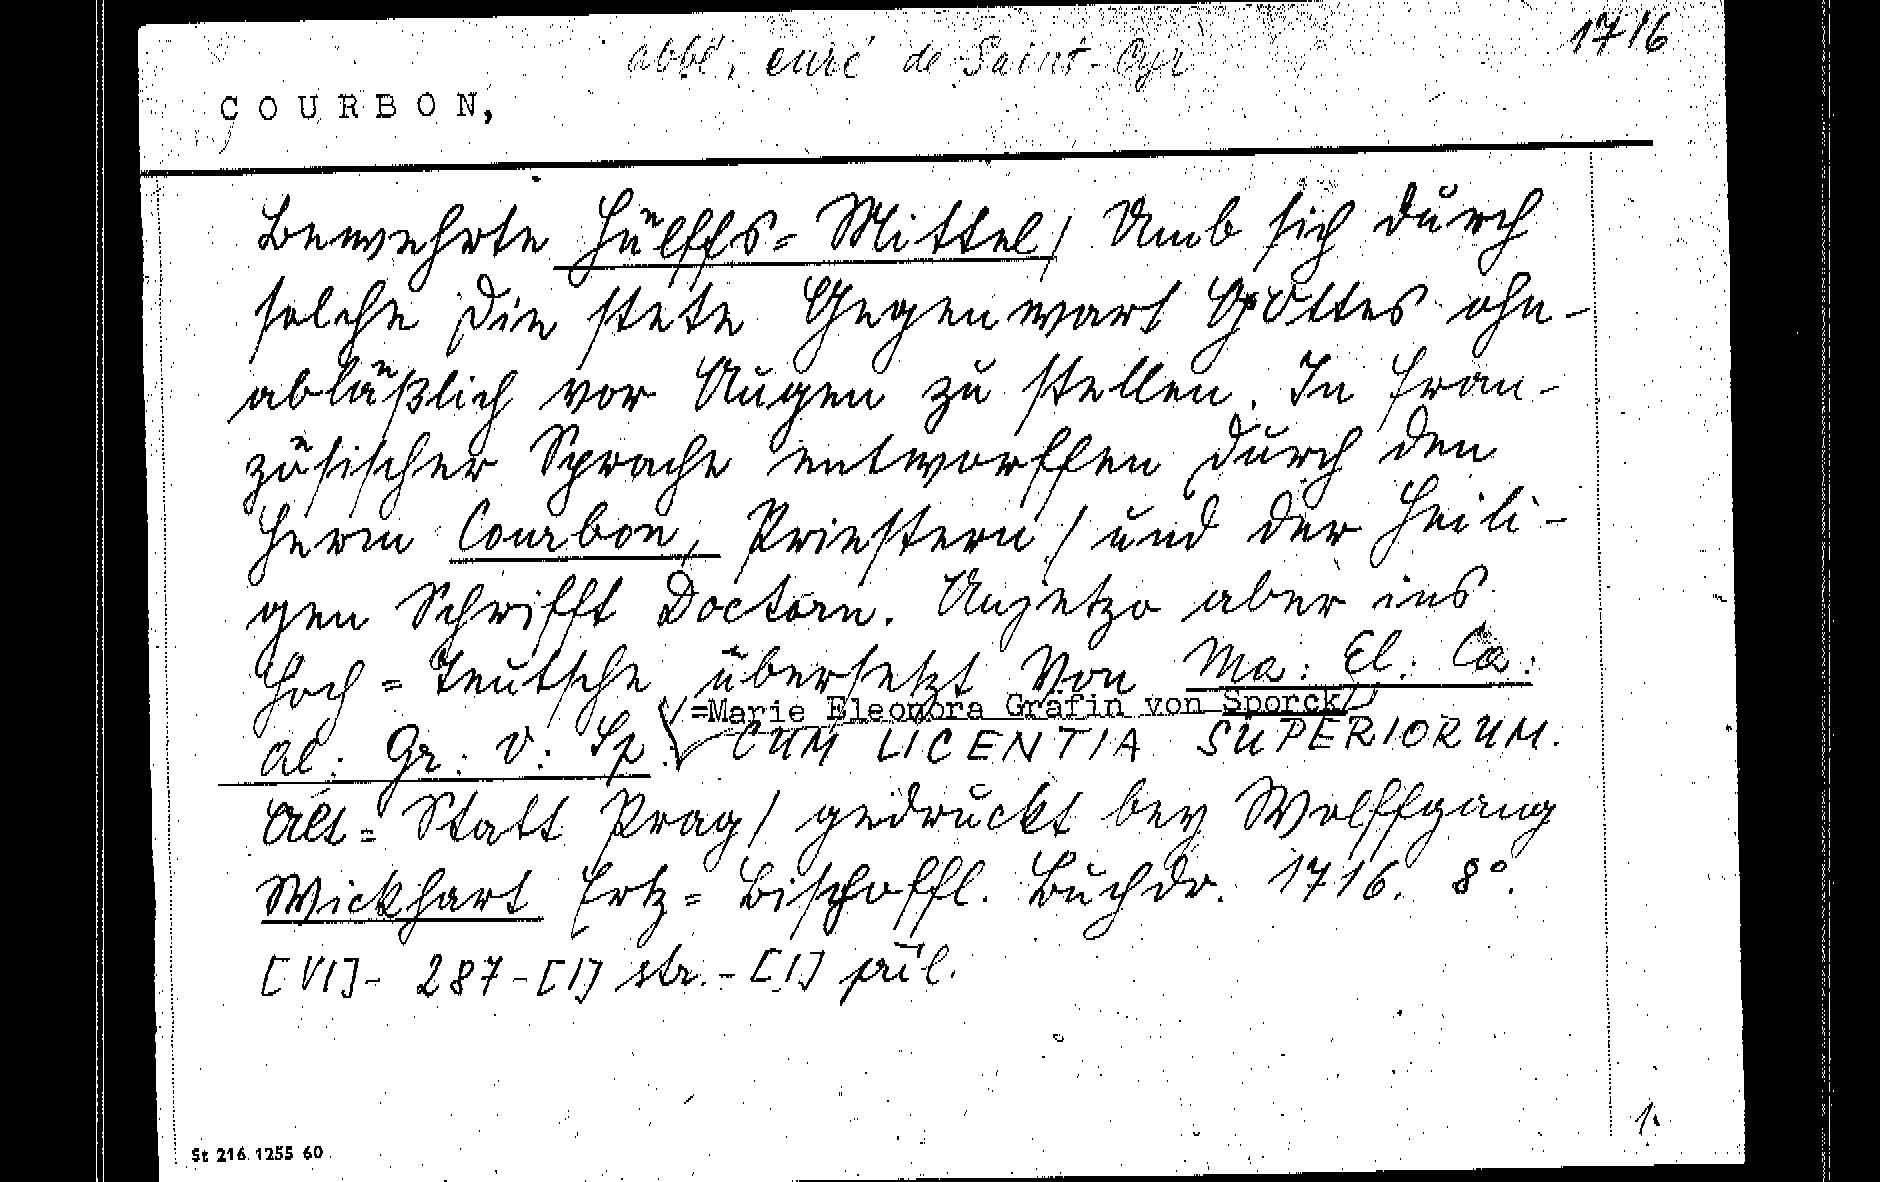 1716
abbé, curé de Saint-Cyr
COURBON,
Bewehrte Hülffs=Mittel/ Umb sich durch
solche die stete Gegenwart GOttes ohn-
abläßlich vor Augen zu stellen. In fran-
zösischer Sprache entworffen durch den
Herrn Courbon, Priestern/ und der Heili-
gen Schrifft Doctorn. Anjetzo aber ins
Hoch=Teutsche übersetzt Von Ma: El: Ca:
=Marie Eleonora Gräfin von Sporck/
Al: Gr: v: Sp: CUM LICENTIA SUPERIORUM.
Alt=Statt Prag/ gedruckt bey Wolffgang
Wickhart Ertz=Bischoffl. Buchdr. 1716. 8°.
[VI]- 287-[1] str.-[1] příl.
1.
St 216 1255 60